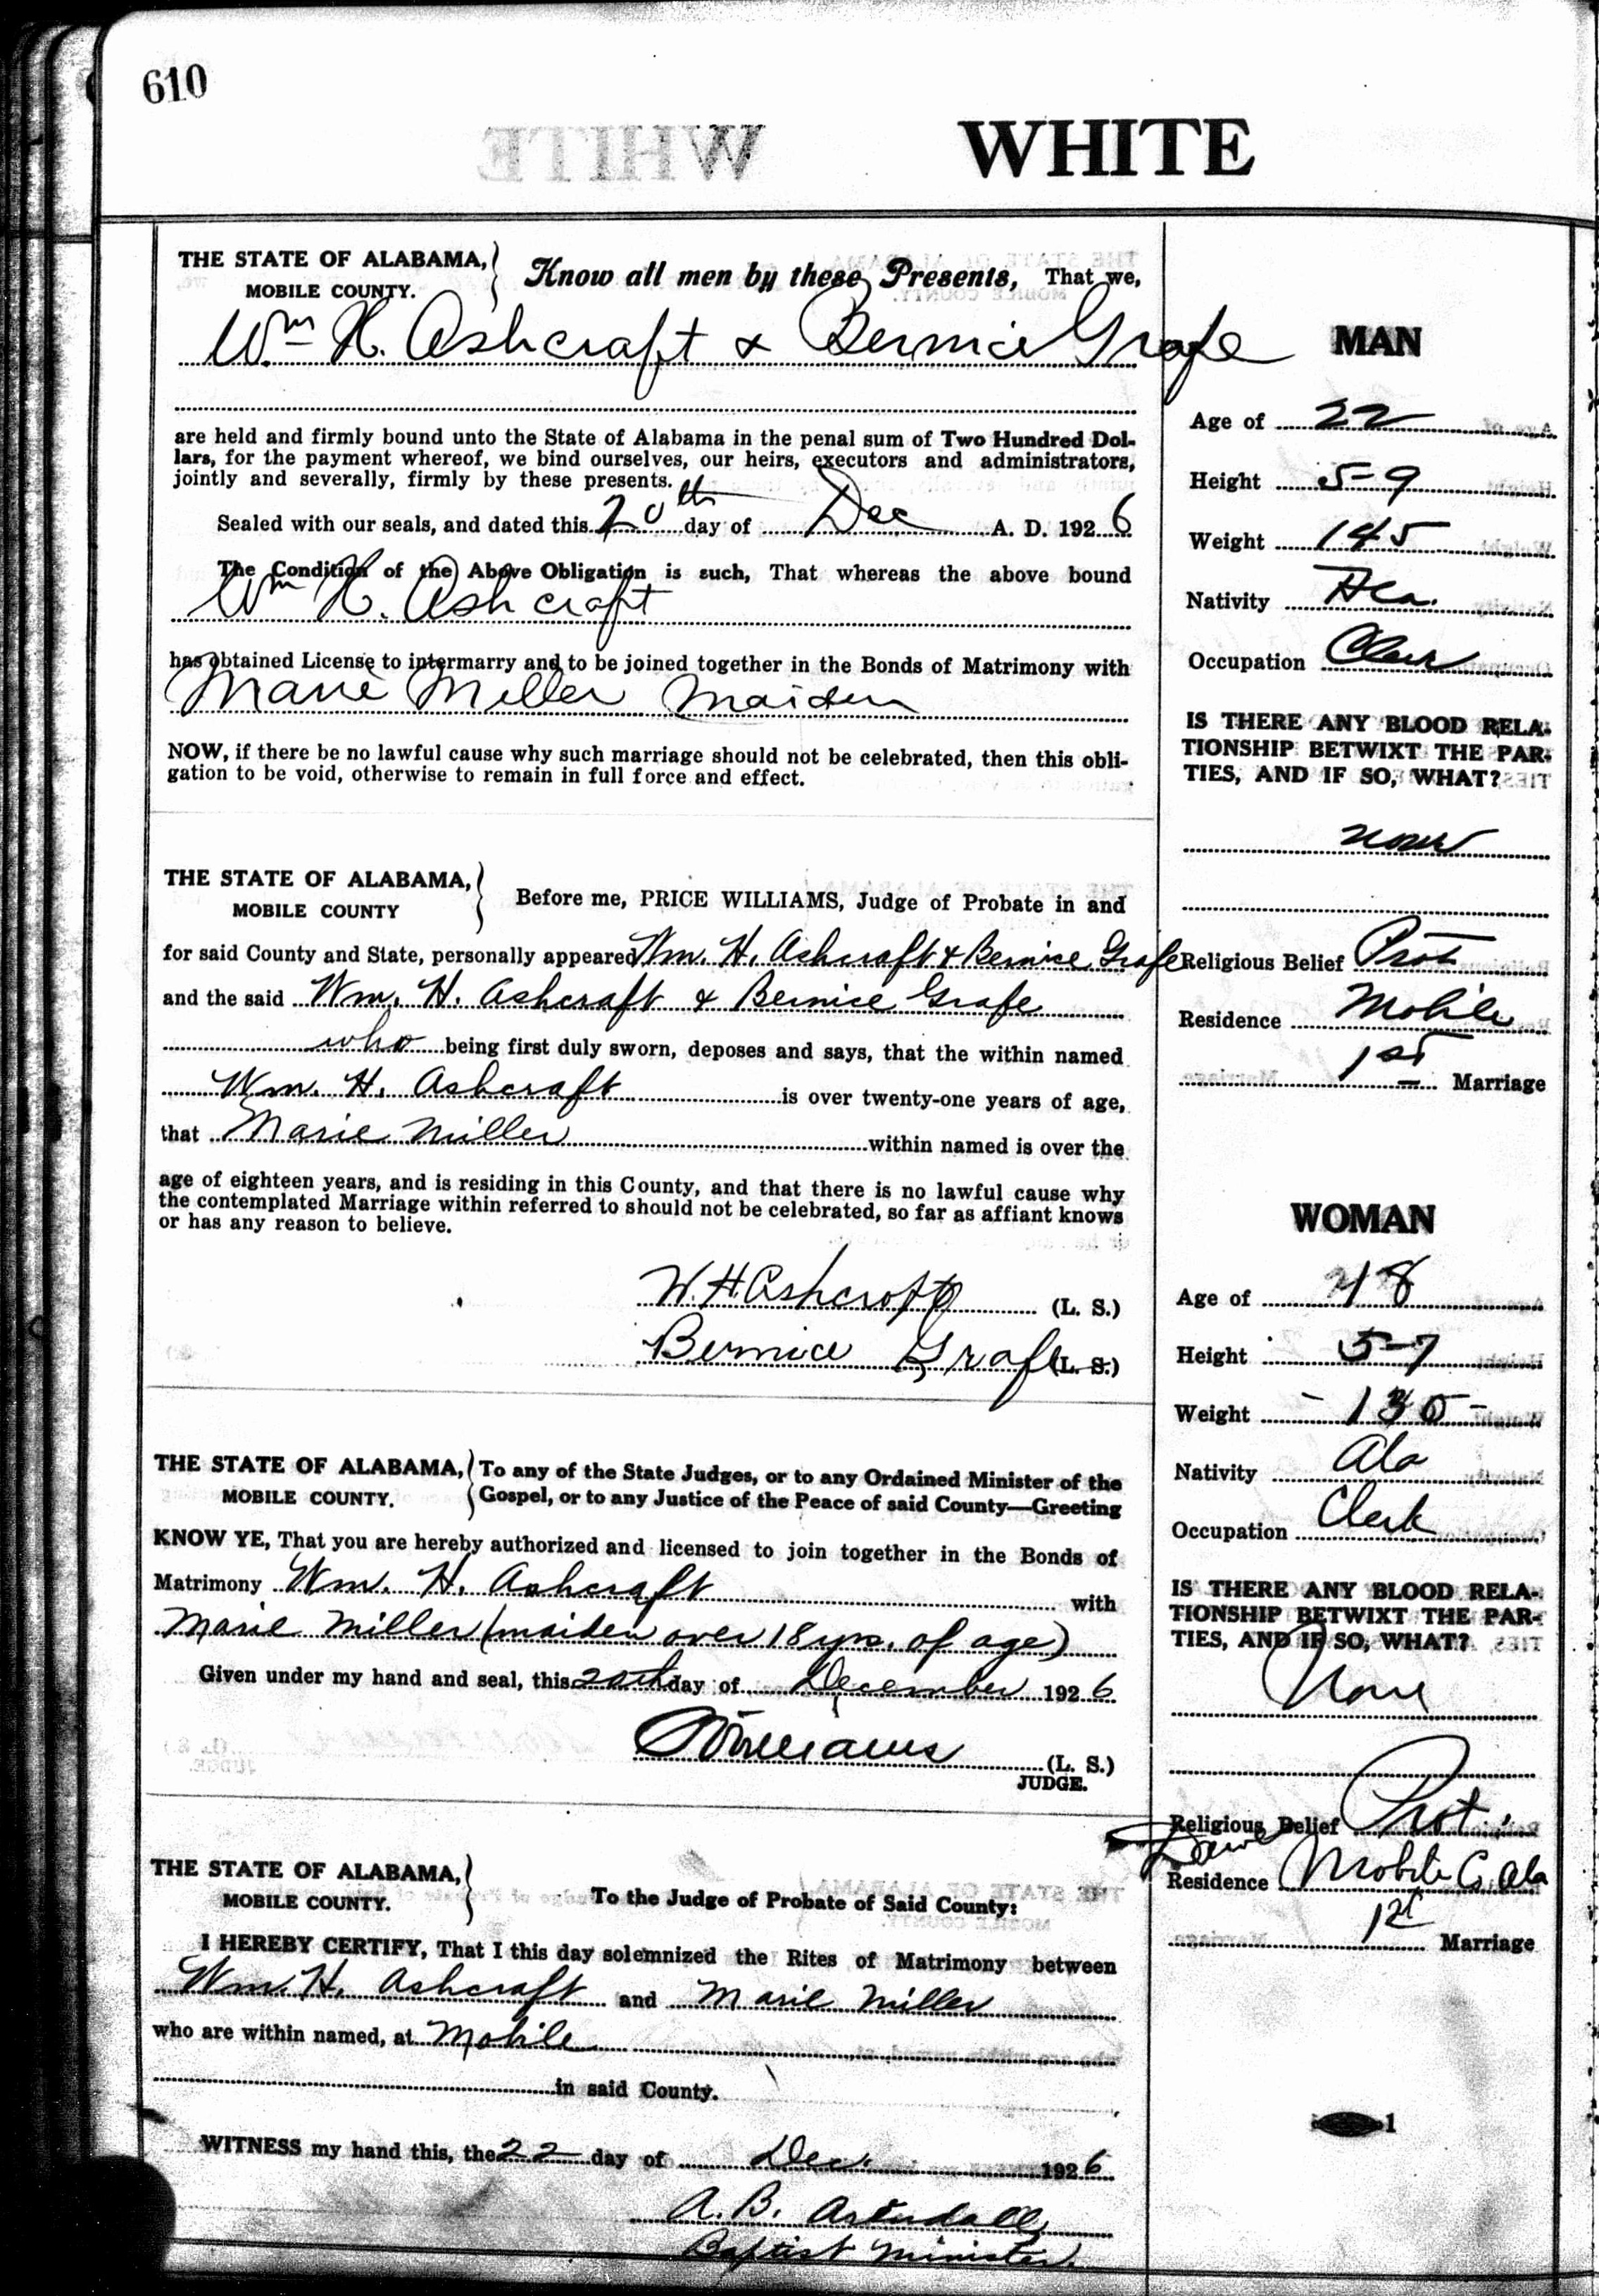 610
WHITE
THE STATE OF ALABAMA,
MOBILE COUNTY.
Know all men by these Presents, That we,
Wm H. Ashcraft & Bernice Grafe
are held and firmly bound unto the State of Alabama in the penal sum of Two Hundred Dol-
lars, for the payment whereof, we bind ourselves, our heirs, executors and administrators,
jointly and severally, firmly by these presents.
Sealed with our seals, and dated this 20th day of Dec A. D. 1926
The Condition of the Above Obligation is such, That whereas the above bound
Wm H. Ashcraft
has obtained License to intermarry and to be joined together in the Bonds of Matrimony with
Marie Miller Maiden
NOW, if there be no lawful cause why such marriage should not be celebrated, then this obli-
gation to be void, otherwise to remain in full force and effect.
THE STATE OF ALABAMA,
MOBILE COUNTY
Before me, PRICE WILLIAMS, Judge of Probate in and
for said County and State, personally appeared Wm. H. Ashcraft & Bernice Grafe
and the said Wm. H. Ashcraft & Bernice Grafe
who being first duly sworn, deposes and says, that the within named
Wm. H. Ashcraft is over twenty-one years of age,
that Marie Miller within named is over the
age of eighteen years, and is residing in this County, and that there is no lawful cause why
the contemplated Marriage within referred to should not be celebrated, so far as affiant knows
or has any reason to believe.
W. H. Ashcraft (L. S.)
Bernice Grafe (L. S.)
THE STATE OF ALABAMA,
MOBILE COUNTY.
To any of the State Judges, or to any Ordained Minister of the
Gospel, or to any Justice of the Peace of said County—Greeting
KNOW YE, That you are hereby authorized and licensed to join together in the Bonds of
Matrimony Wm. H. Ashcraft with
Marie Miller (maiden over 18 yrs. of age)
Given under my hand and seal, this 20th day of December 1926
Williams (L. S.)
JUDGE.
THE STATE OF ALABAMA,
MOBILE COUNTY.
To the Judge of Probate of Said County:
I HEREBY CERTIFY, That I this day solemnized the Rites of Matrimony between
Wm. H. Ashcraft and Marie Miller
who are within named, at Mobile
in said County.
WITNESS my hand this, the 22 day of Dec. 1926
A. B.
Baptist Minister.
MAN
Age of 22
Height 5-9
Weight 145
Nativity
Occupation Clerk
IS THERE ANY BLOOD RELA-
TIONSHIP BETWIXT THE PAR-
TIES, AND IF SO, WHAT?
none
Religious Belief Prot
Residence Mobile
1st Marriage
WOMAN
Age of 18
Height 5-7
Weight - 130 -
Nativity Ala
Occupation Clerk
IS THERE ANY BLOOD RELA-
TIONSHIP BETWIXT THE PAR-
TIES, AND IF SO, WHAT?
None
Religious Belief Prot.
Residence Mobile Co Ala
1st Marriage
1